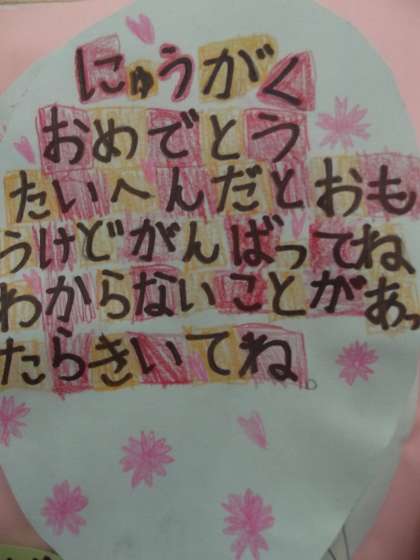 にゅうがく
おめでとう
たいへんだとおも
うけどがんばってね
わからないことがあっ
たらきいてね。